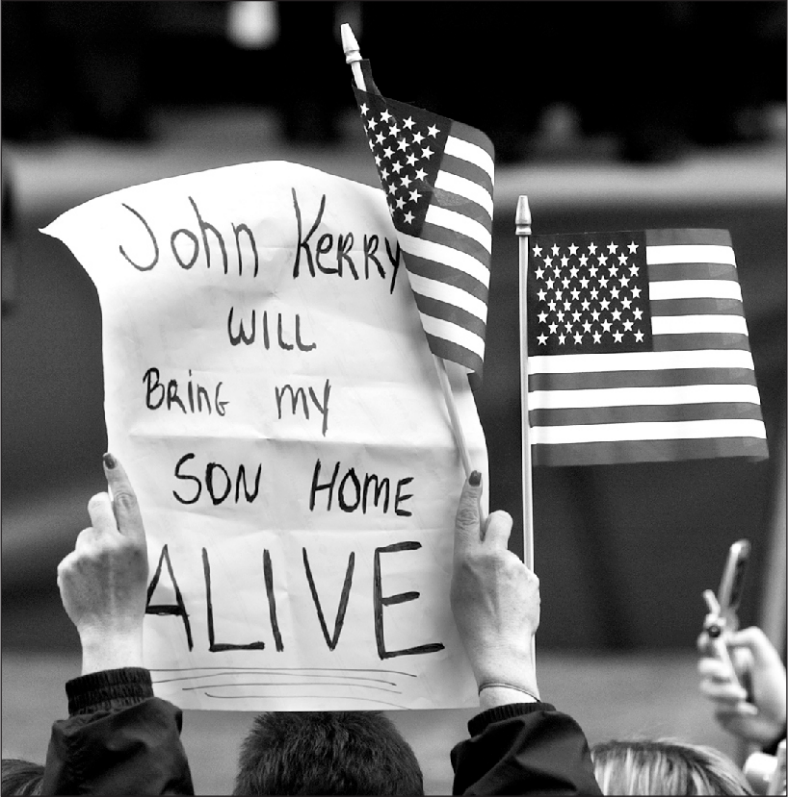 John Kerry
WILL
Bring my
SON HOME
ALIVE